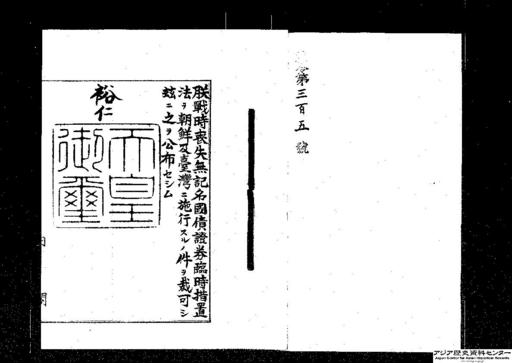 第三百五號
朕戰時喪失無記名國債證券臨時措置
法ヲ朝鮮及臺灣ニ施行スルノ件ヲ裁可シ
玆ニ之ヲ公布セシム
裕仁
天皇
御璽
内閣
アジア歴史資料センター
Japan Center for Asian Historical Records